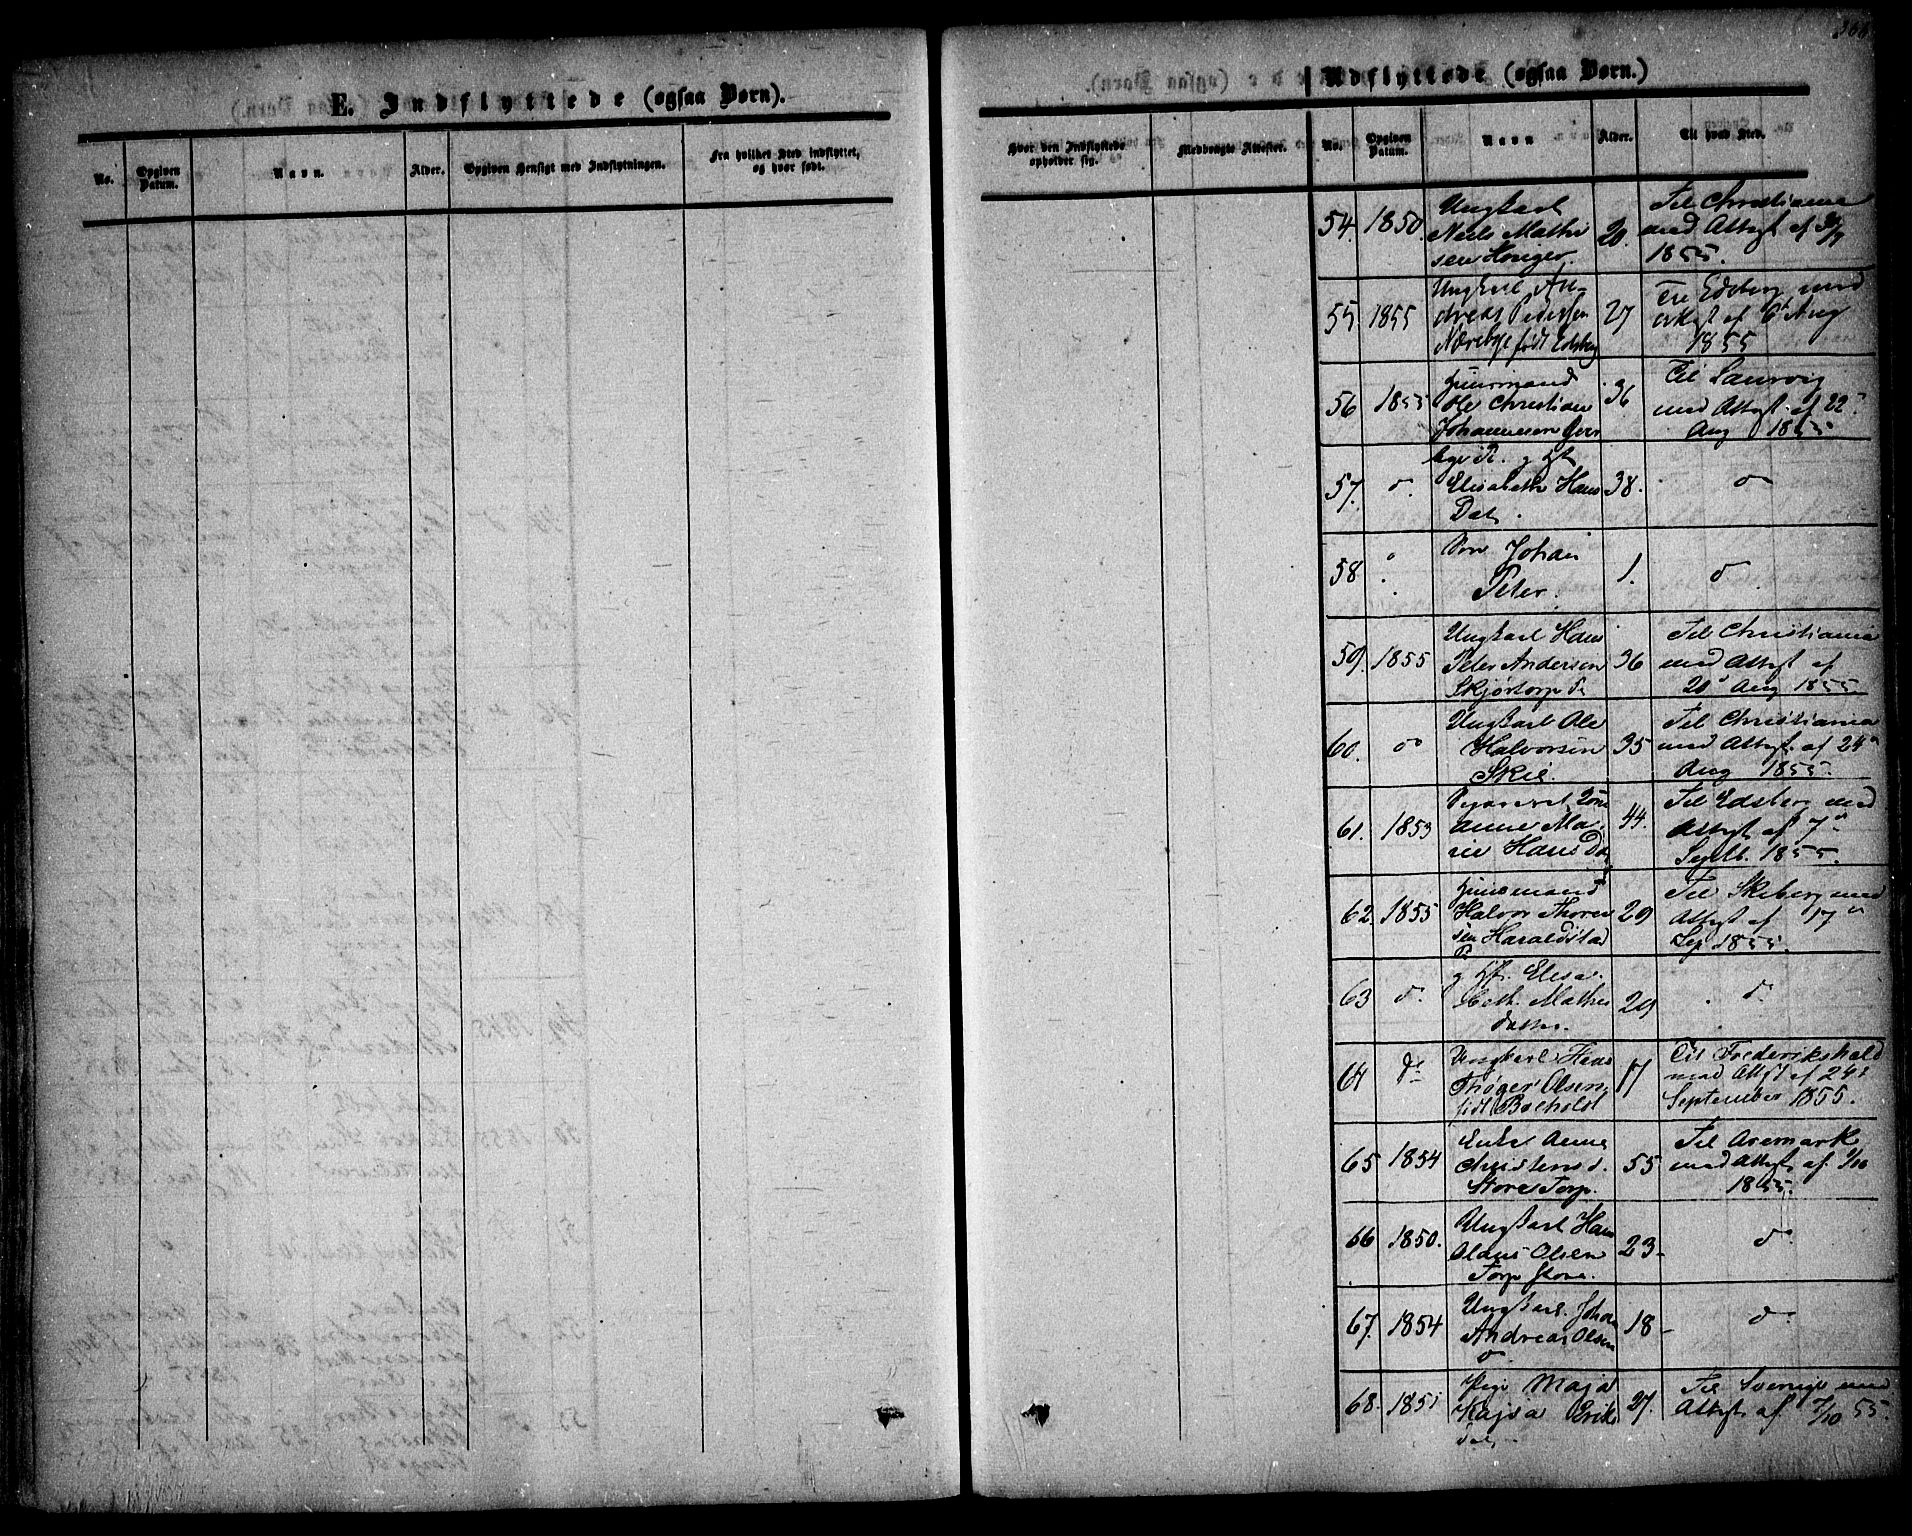 366
E. Indflyttede (ogsaa Børn).
Udflyttede (ogsaa Børn.)
No.
Opgiven Datum.
Navn.
Alder.
Opgiven Hensigt med Indflytningen.
Fra hvilket Sted indflyttet,
og hvor født.
Hvor den Indflyttede
opholder sig.
Medbragte Attester.
No.
Opgiven Datum.
Navn
Alder.
Til hvad Sted.
54. 1850. Ungkarl 20. Til Christiania
Neels Mathi med Attest af
sen 1855.
55 1855 Ungkarl An- 27 Til Edsberg med
dreas Pedersen af 6t Aug
Nærebye født Edsberg 1855
56 1855 Huusmand 36 Til Laurvig
Ole Christian med Attest af 22
Johannesen Aug 1855
57. do g Hst 38. do
Elisabeth Hans
Datr.
58 Søn Johan 1. do
Peter.
59. 1855 Ungkarl Hans 36 Til Christiania
Peter Andersen med Attest af
Skjørtorp 20d Aug 1855.
60. do Ungkarl Ole 35 Til Christiania
Halvorsen med Attest af 24d
Skie. Aug 1855.
61. 1853 44. Til Edsberg med
Anne Ma- Attest af 7d
rie Hans Da Septb. 1855.
62. 1855 Huusmand 29 Til Skeberg med
Halvor Thoree Attest af 17d
sen Haraldstad Sep 1855.
63 do g Hst. Elisa 29 do
beth Mathis
datter.
64 do Ungkarl Hans 17 Til Frederikshald
Thøger Olsen med Attst af 24d
født September 1855.
65 1854 Enke Anne 55 Til Aremark
Christens d. med Attest af 1/10
Store Torp. 1855.
66 1850. Ungkarl Hans 23- do
Olaus Olsen
Torp store.
67. 1854 Ungkarl Johan 18- do
Andreas Olsen
do
68. 1851 Pige Maja 27. Til Sverige med
Kajsa Eriks Attest af 2/10 55.
datr